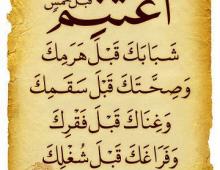 اغتنم
قبل خمس
شَبَابَكَ قَبْلَ هَرَمِكَ
وَصِحَّتَكَ قَبْلَ سَقَمِكَ
وَغِنَاكَ قَبْلَ فَقْرِكَ
وَفَرَاغَكَ قَبْلَ شُغْلِكَ